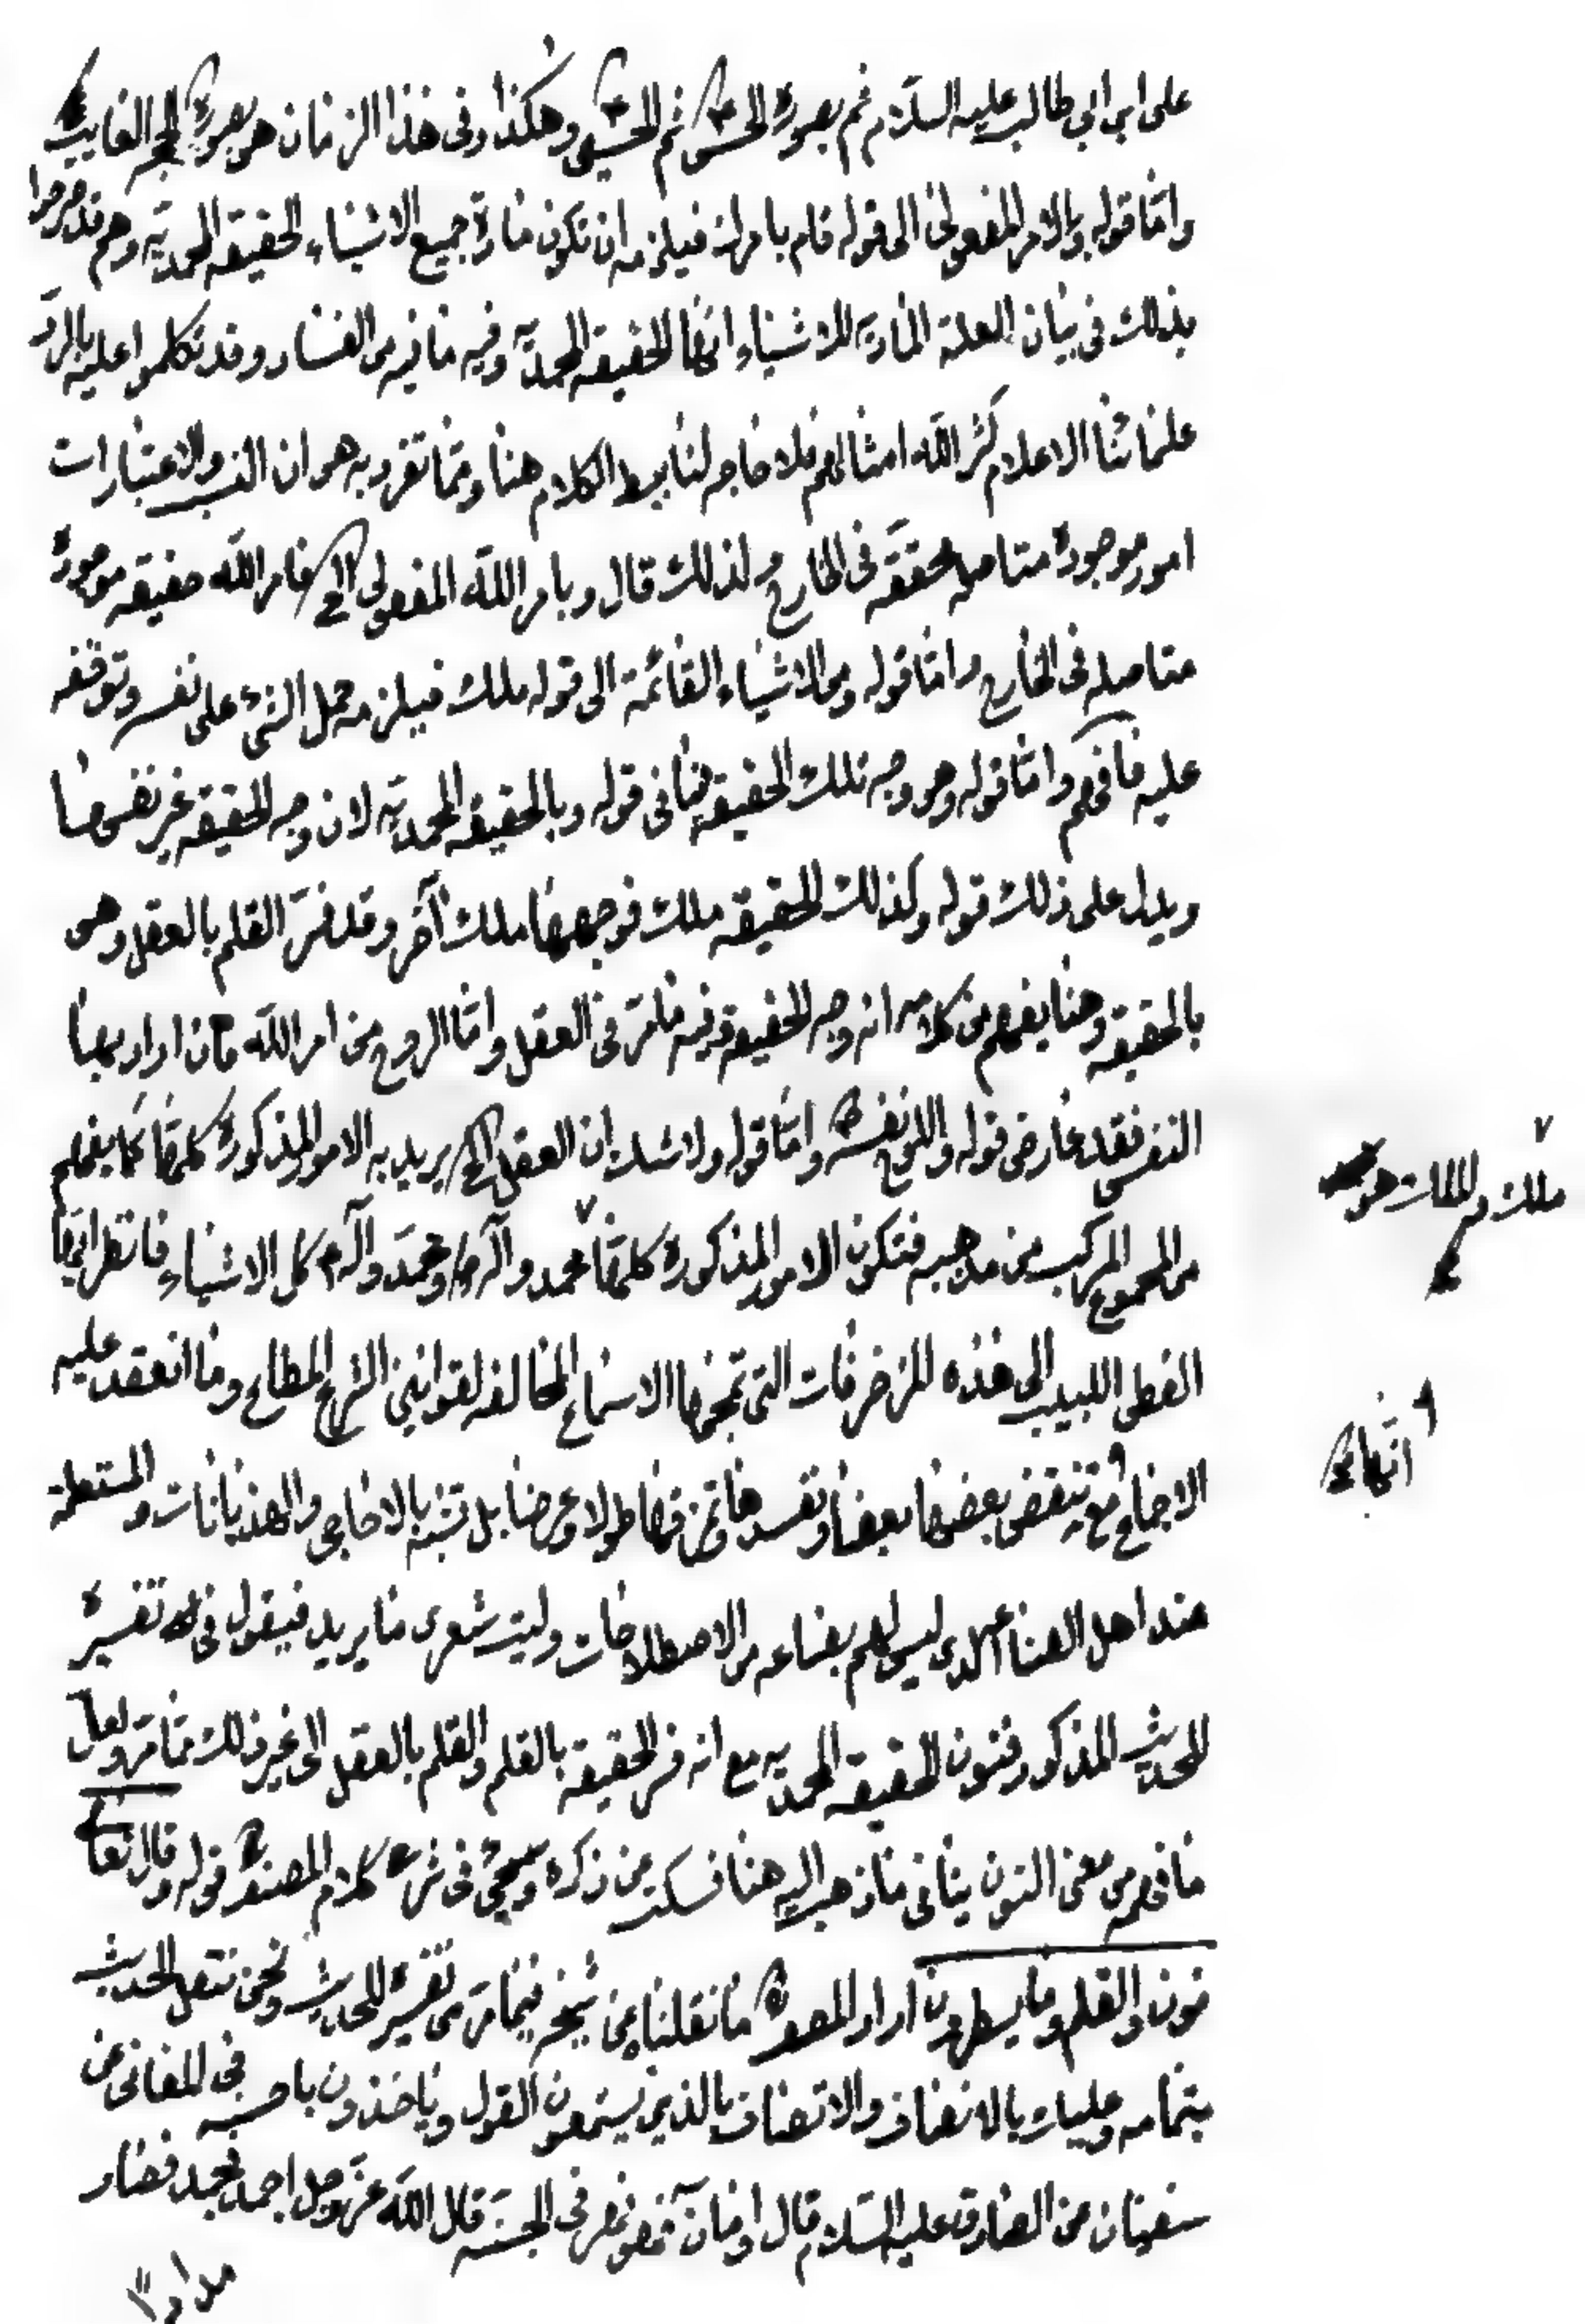 على ابن ابي طالب عليه السلام ثم بصورة الحسن ثم الحسين وهكذا وفي هذا الزمان هي بصورة الحجة الغايب
واما قوله وبالامر المفعولي الى قوله قام بامرك فيلزمه ان تكون مادة جميع الاشياء الحقيقة المحمدية وهم قد صرحوا
بذلك في بيان العلة المادية للاشياء انها الحقيقة المحمدية وفيه ما فيه من الفساد وقد تكلموا عليه بالرد
علمائنا الاعلام كثر الله امثالهم فلا حاجه لنا ببسط الكلام هنا ومما تفرد به هو ان النسب والاعتبارات
امور موجودة متاصلة محققة في الخارج ولذلك قال وبامر الله المفعولي الخ فامر الله حقيقه موجودة
متاصله في الخارج واما قوله ومن الاشياء القائمة الى قوله ملك فيلزمه حمل الشيء على نفسه وتوقفه
عليه فافهم واما قوله وهو وجه تلك الحقيقة ينافي قوله وبالحقيقة المحمدية لان وجه الحقيقه غير نفسها
ويدل على ذلك قوله وكذلك الحقيقه ملك فوجهها ملك آخر وقد فسر القلم بالعقل وهي
بالحقيقه وهنا يفهم من كلامه انه وجه الحقيقة وفيه ما مر في العقل واما الروح من امر الله فان اراد بها
النفس فقد عارض قوله واللوح نفسه واما قوله ولا شك ان العقل الخ يريد به الامور المذكورة كلها كما يفهم
من المجموع المركب من مذهبه فتكون الامور المذكورة كلها محمد وآله ومحمد وآله كل الاشياء فانظر ايها
ملك والملك هو
الفطن اللبيب الى هذه المزخرفات التي تمجها الاسماع المخالفه لقوانين الشرع المطاع وما انعقد عليه
الاجماع مع ينقض بعضها بعضا وتفسد طولا وعرضا بل تشبه بالاحاجي والهذيانات والمستعملة
انها
عند اهل الصناعه الذي ليس لهم بضاعه من الاصطلاحات وليت شعري ما يريد فيقول في تفسير
الحديث المذكور فنون الحقيقه المحمديه مع انه فسر الحقيقة بالقلم والقلم بالعقل الى غير ذلك مما مر ولعل
ما فهمه من معنى النون ينافي ما ذهب اليه هنا فسكت من ذكره وسيجئ في شرح كلام المصنف قوله قال تعالى
نون والقلم وما يسطرون اراد المصنف ما نقلناه من شيخه فيما مر من تفسير الحديث ونحن ننقل الحديث
بتمامه وعليك بالانصاف والاتصاف بالذين يستمعون القول وياخذون باحسنه في المعاني عن
سفيان عن الصادق عليه السلام قال واما ن فهو نهر في الجنة قال الله عز وجل اجمد فجمد فصار
مدادا